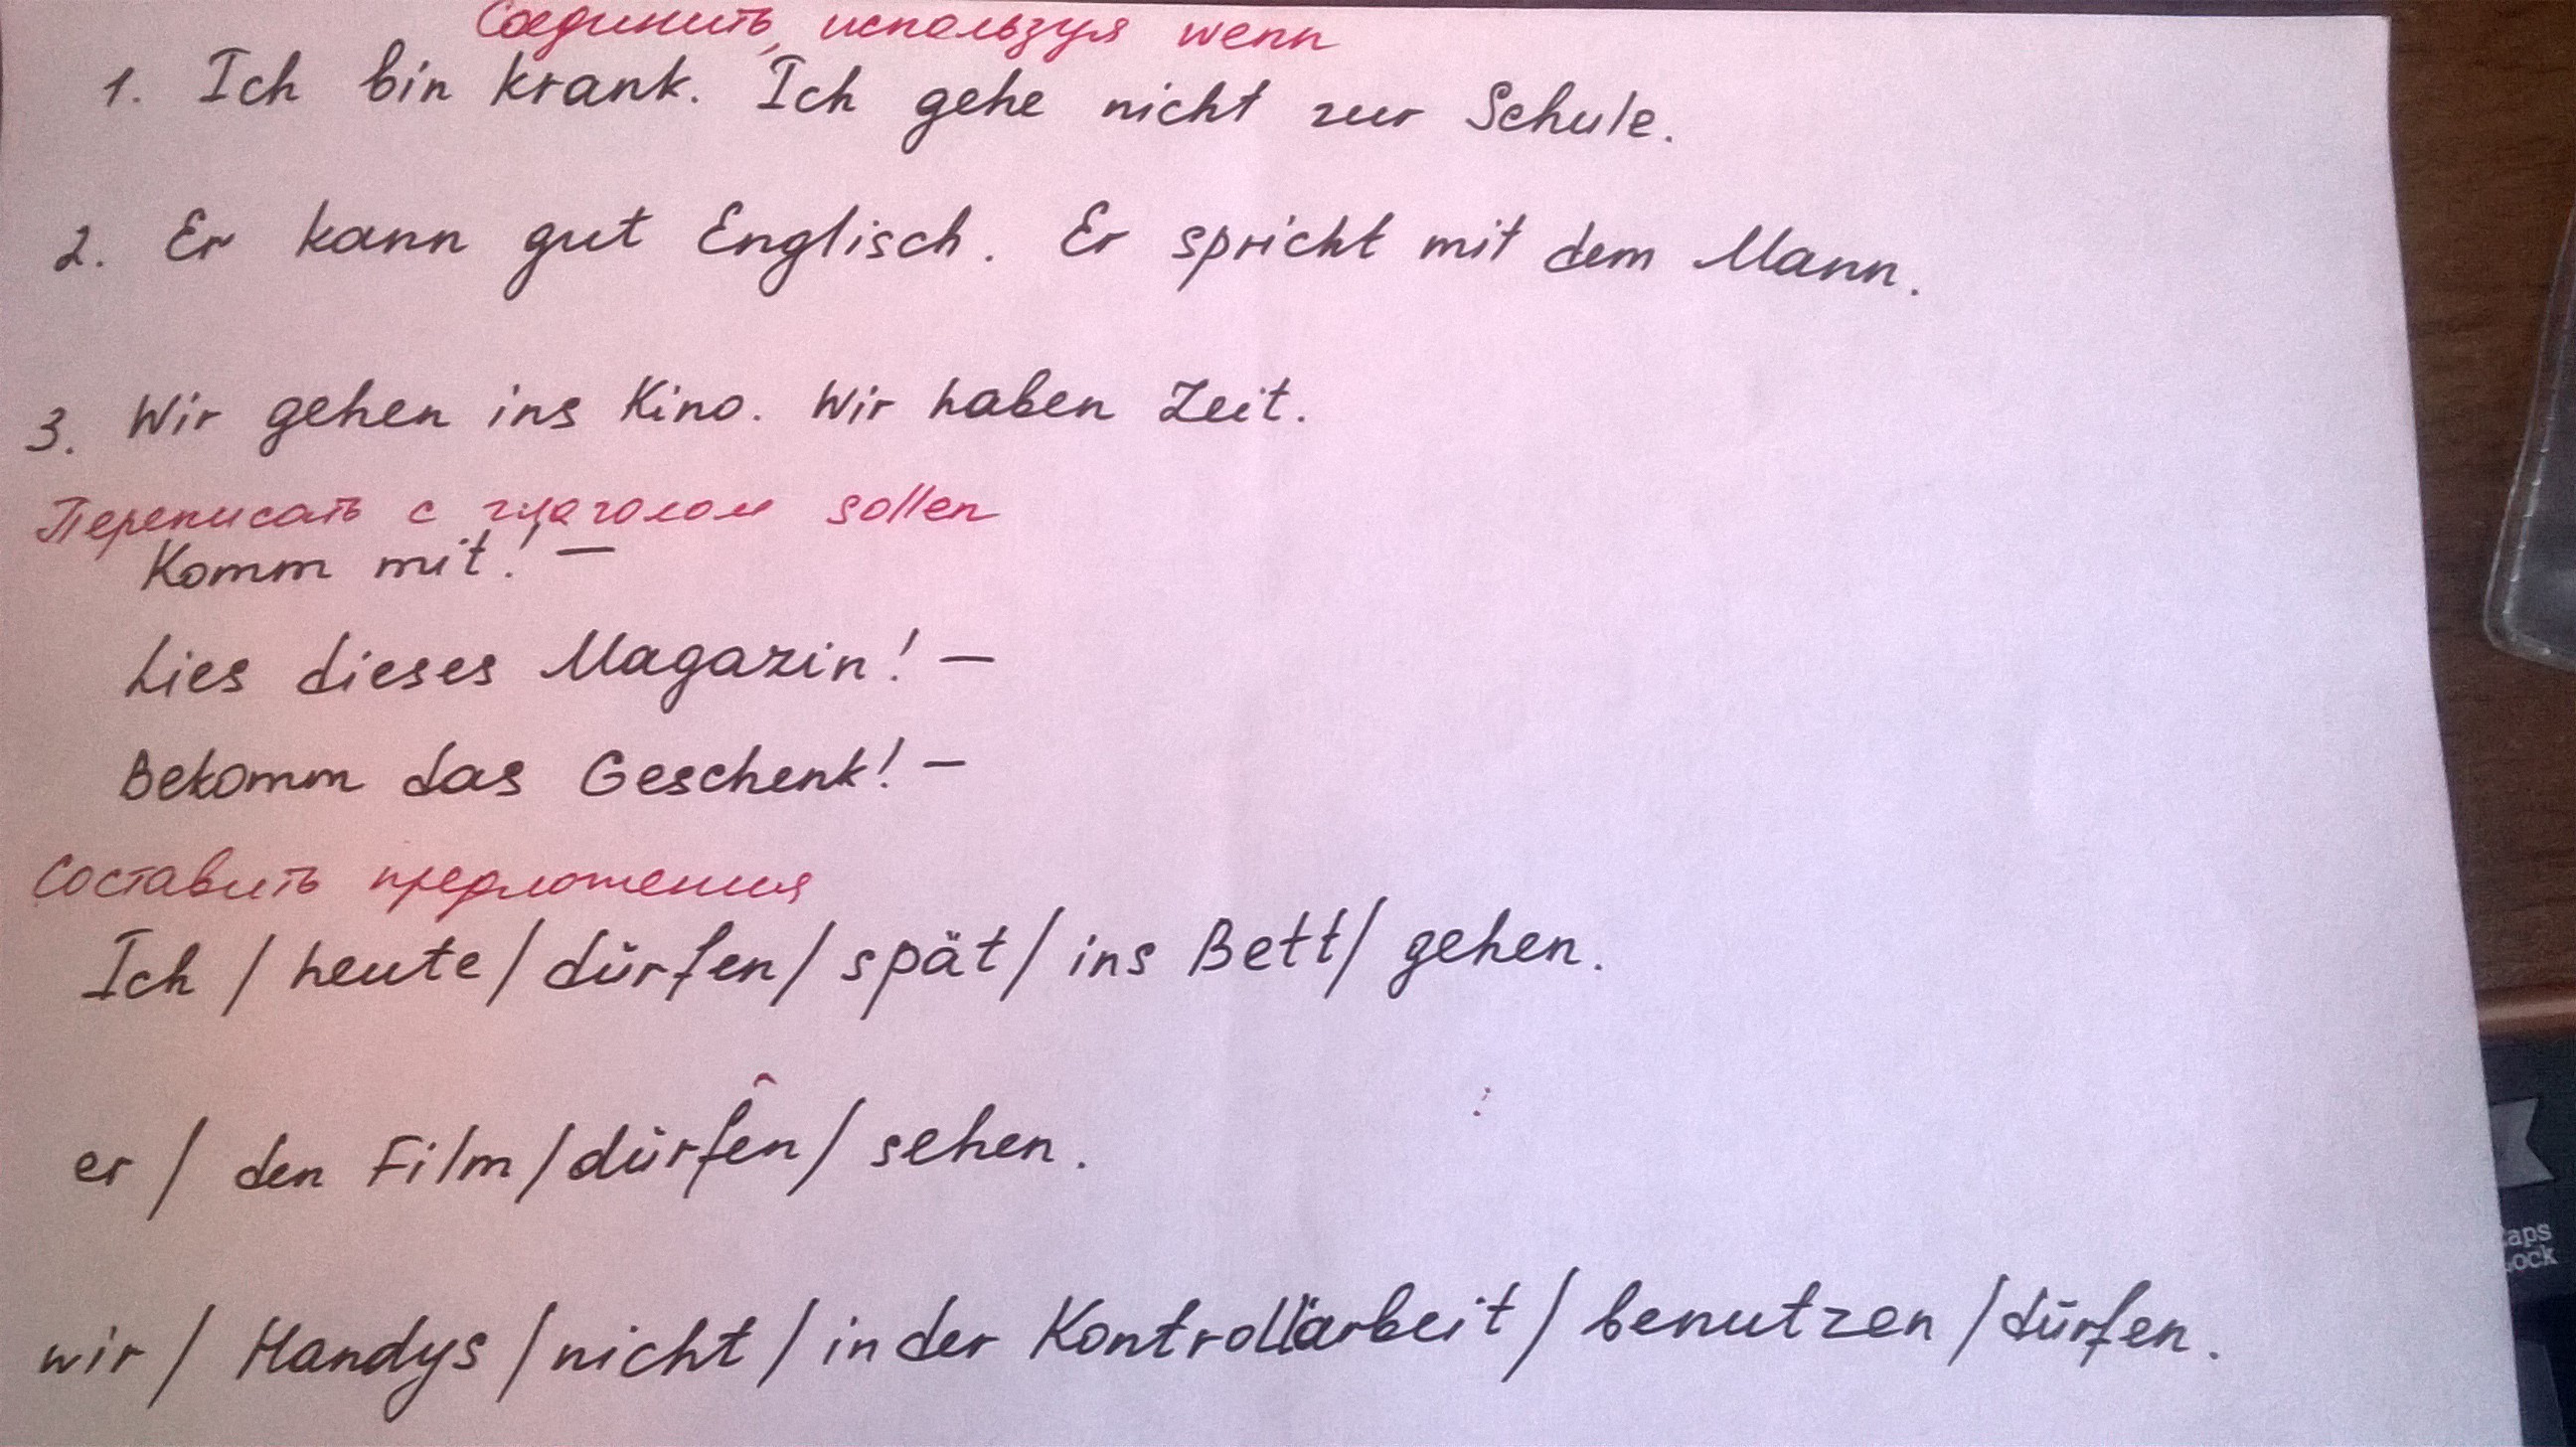 Соединить, используя wenn
1. Ich bin krank. Ich gehe nicht zur Schule.
2. Er kann gut Englisch. Er spricht mit dem Mann.
3. Wir gehen ins Kino. Wir haben Zeit.
Переписать с глаголом sollen
Komm mit! —
Lies dieses Magazin! —
Bekomm das Geschenk! —
Составить предложения
Ich / heute / dürfen / spät / ins Bett / gehen.
er / den Film / dürfen / sehen.
wir / Handys / nicht / in der Kontrollarbeit / benutzen / dürfen.
Caps
Lock